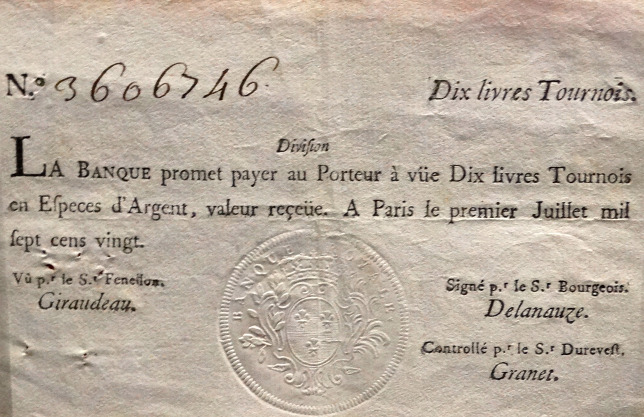 N.º 3606746. Dix livres Tournois.
Diviſion
LA BANQUE promet payer au Porteur à vüe Dix livres Tournois
en Eſpeces d'Argent, valeur reçeüe. A Paris le premier Juillet mil
ſept cens vingt.
Vû p.r le S.r Feneſſon.
Giraudeau.
Signé p.r le S.r Bourgeois.
Delanauze.
Controllé p.r le S.r Dureveſt.
Granet.
BANQUE